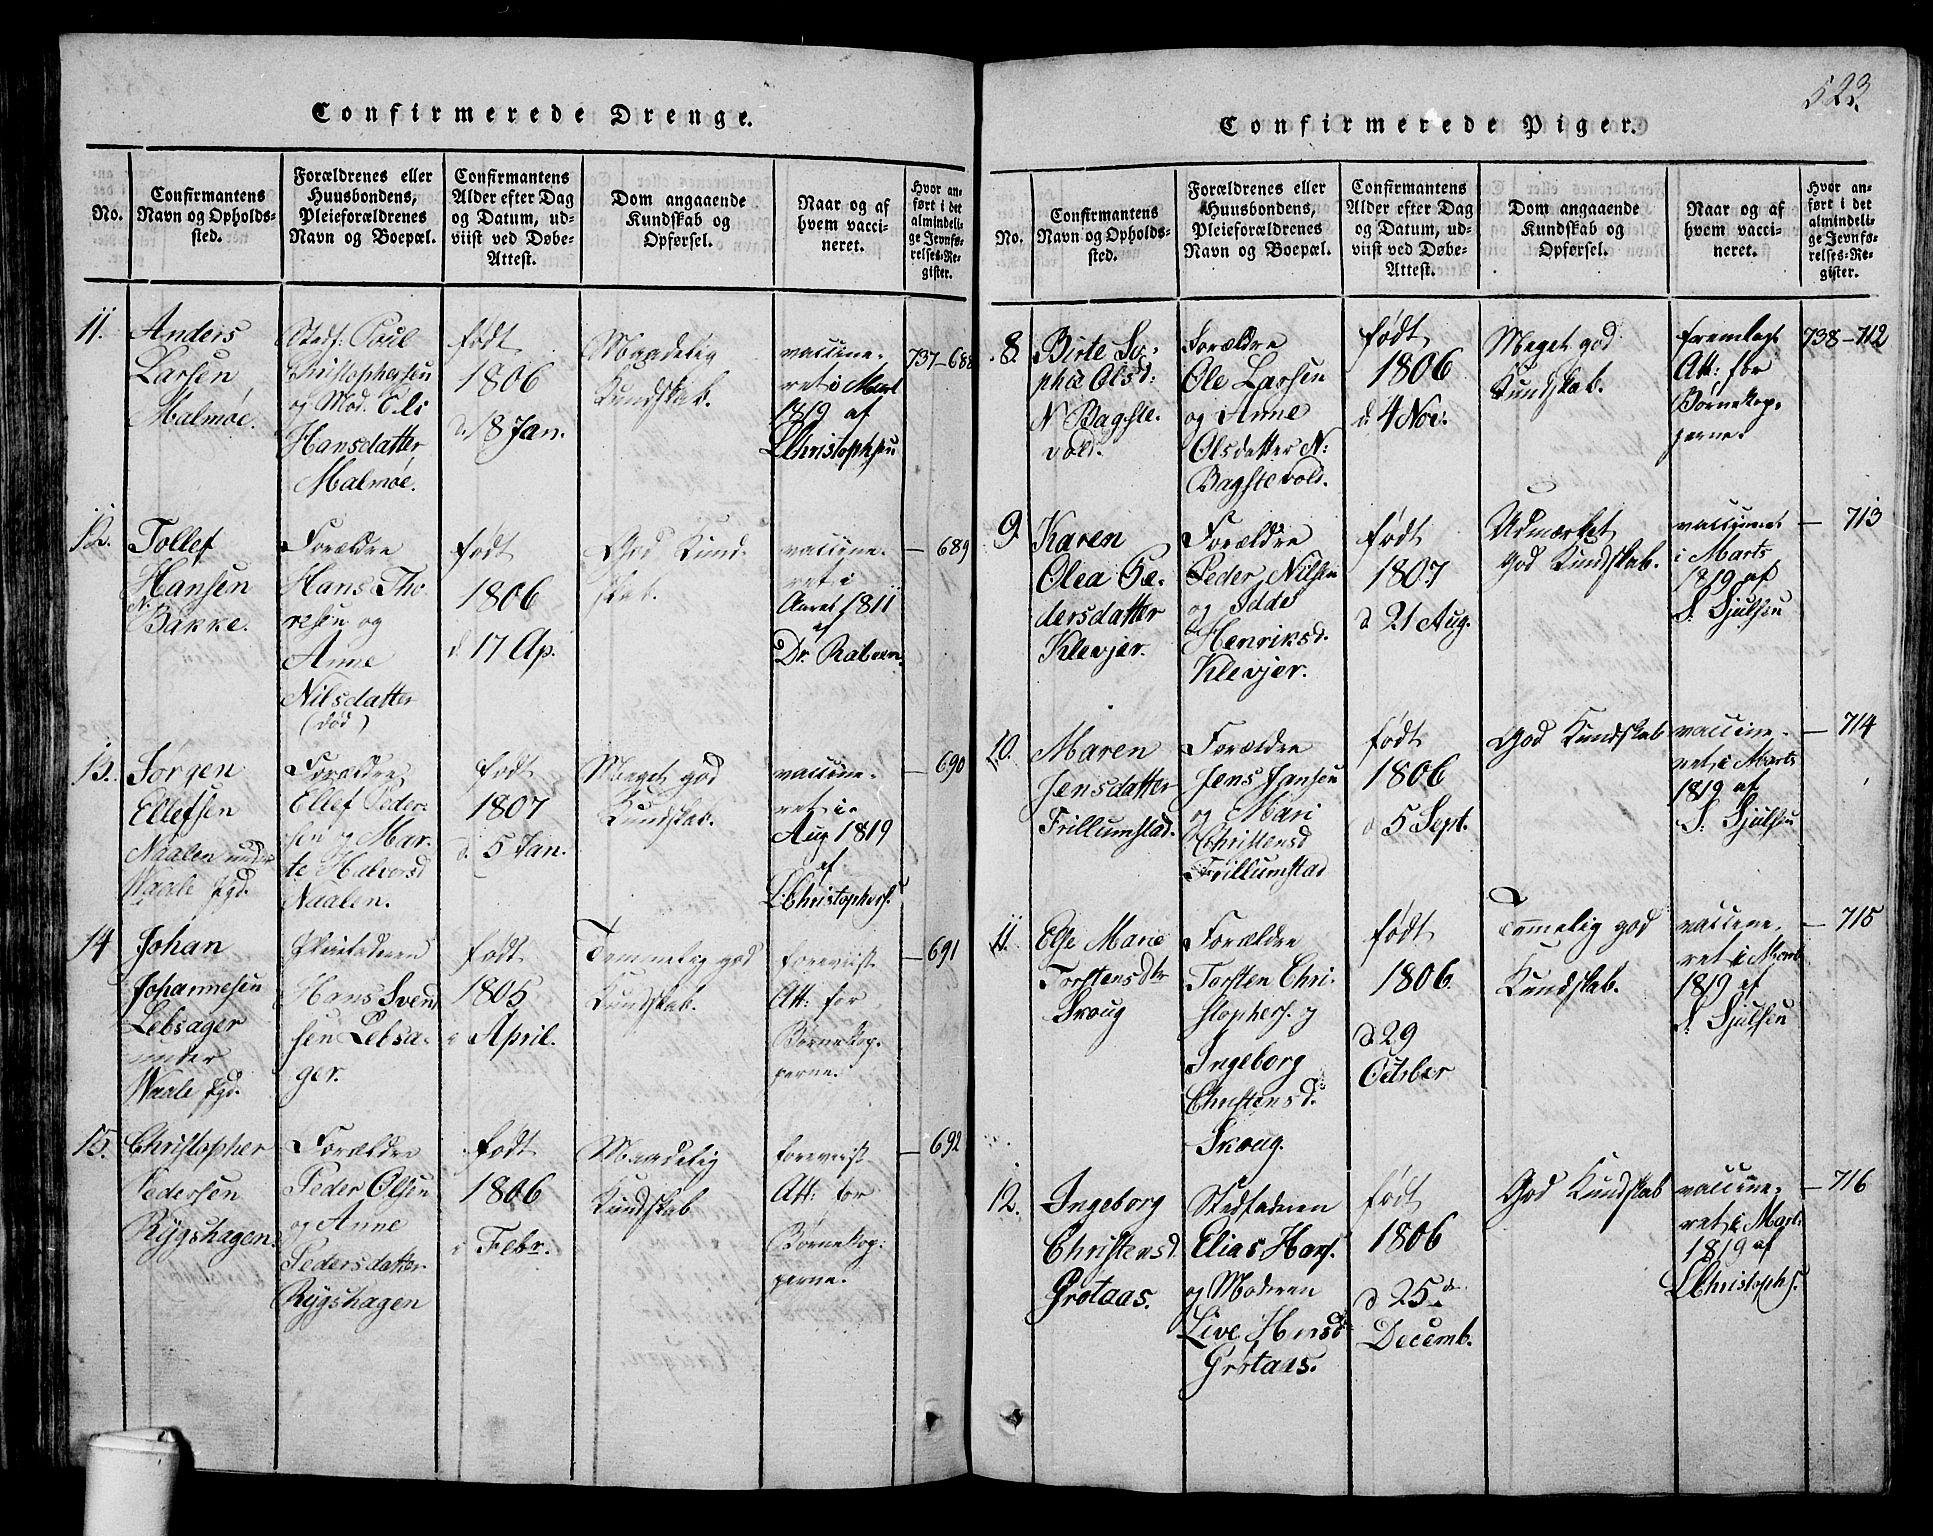 523.
Confirmerede Drenge.
No.
Confirmantens
Navn og Opholds-
sted.
Forældrenes eller
Huusbondens,
Pleieforældrenes
Navn og Boepæl.
Confirmantens
Alder efter Dag
og Datum, ud-
viist ved Døbe-
Attest.
Dom angaaende
Kundskab og
Opførsel.
Naar og af
hvem vacci-
neret.
Hvor an-
ført i det
almindeli-
ge Jevnfø-
relses-Re-
gister.
11.
Anders
Larsen
Malmøe.
Stedf: Poul
Christophersen
og Mod.
Hansdatter
Malmøe.
født
1806
d. 18 Jan.
Maadelig
Kundskab.
vaccine-
ret i Mart
1819 af
L Christophsen
737-688
12.
Tollef
Hansen
N.
Bakke.
Forældre
Hans Tho
resen og
Anne
Nilsdatter
(død)
født
1806
d 17 Ap.
God Kund-
skab.
vaccine-
ret i
Aaret 1811
af
Dr. Raben
— 689
13.
Jørgen
Ellefsen
Naalen under
Waale Pgd.
Forældre
Ellef Peder-
sen og Mar-
te Halvorsd
Naalen.
født
1807
d. 5 Jan.
Meget god
Kundskab.
vaccine-
ret i
Aug 1819
af
L Christophers.
— 690
14
Johan
Johannesen
Lebsager
under
Waale Pgd.
Pleiefaderen
Hans Sven
sen Lebsa-
ger.
født
1805
i April.
Temmelig god
Kundskab.
foreviist
Att: for
Børnekop-
perne.
— 691
15.
Christopher
Pedersen
Rygshagen.
Forældre
Peder Olsen
og Anne
Pedersdatter
Rygshagen
født
1806
i Febr.
Maadelig
Kundskab
foreviist
Att: for
Børnekop-
perne.
— 692
Confirmerede Piger.
No.
Confirmantens
Navn og Opholds-
sted.
Forældrenes eller
Huusbondens,
Pleieforældrenes
Navn og Boepæl.
Confirmantens
Alder efter Dag
og Datum, ud-
viist ved Døbe-
Attest.
Dom angaaende
Kundskab og
Opførsel.
Naar og af
hvem vacci-
neret.
Hvor an-
ført i det
almindeli-
ge Jevnfø-
relses-Re-
gister.
8.
Birte So-
phie Olsd:
N Bagste-
vold.
Forældre
Ole Larsen
og Anne
Olsdatter N:
Bagstevold.
født
1806
d 4 Nov:
Meget god
Kundskab.
fremlagt
Att: for
Børnekop-
perne.
738-712
9.
Karen
Olea Pe-
dersdatter
Klevjer.
Forældre
Peder Nilsen
og Idde
Henriksd.
Klevjer.
født
1807
d 21 Aug.
Udmærket
god Kundskab.
vaccineret
i Marts
1819 af
S. Sjulsen
— 713
10.
Maren
Jensdatter
Trillumstad.
Forældre
Jens Jansen
og Mari
Christensd
Trillumstad
født
1806
d 5 Sept.
God Kundskab
vaccine-
ret i Marts
1819 af
S. Sjulsen
— 714
11.
Else Marie
Torstensdtr
Skoug
Forældre
Torsten Chri-
stophers. og
Ingeborg
Christensd.
Skoug.
født
1806.
d. 29
October
Temmelig god
Kundskab.
vaccine-
ret i Marts
1819 af
S. Sjulsen
— 715
12.
Ingeborg
Christensd.
Grøtaas.
Stedfaderen
Elias Hans.
og Moderen
Live Hansd
Grøtaas.
født
1806
d 25de
Decemb.
God Kundskab
vaccine-
ret i Mart:
1819 af
L Christophs.
— 716